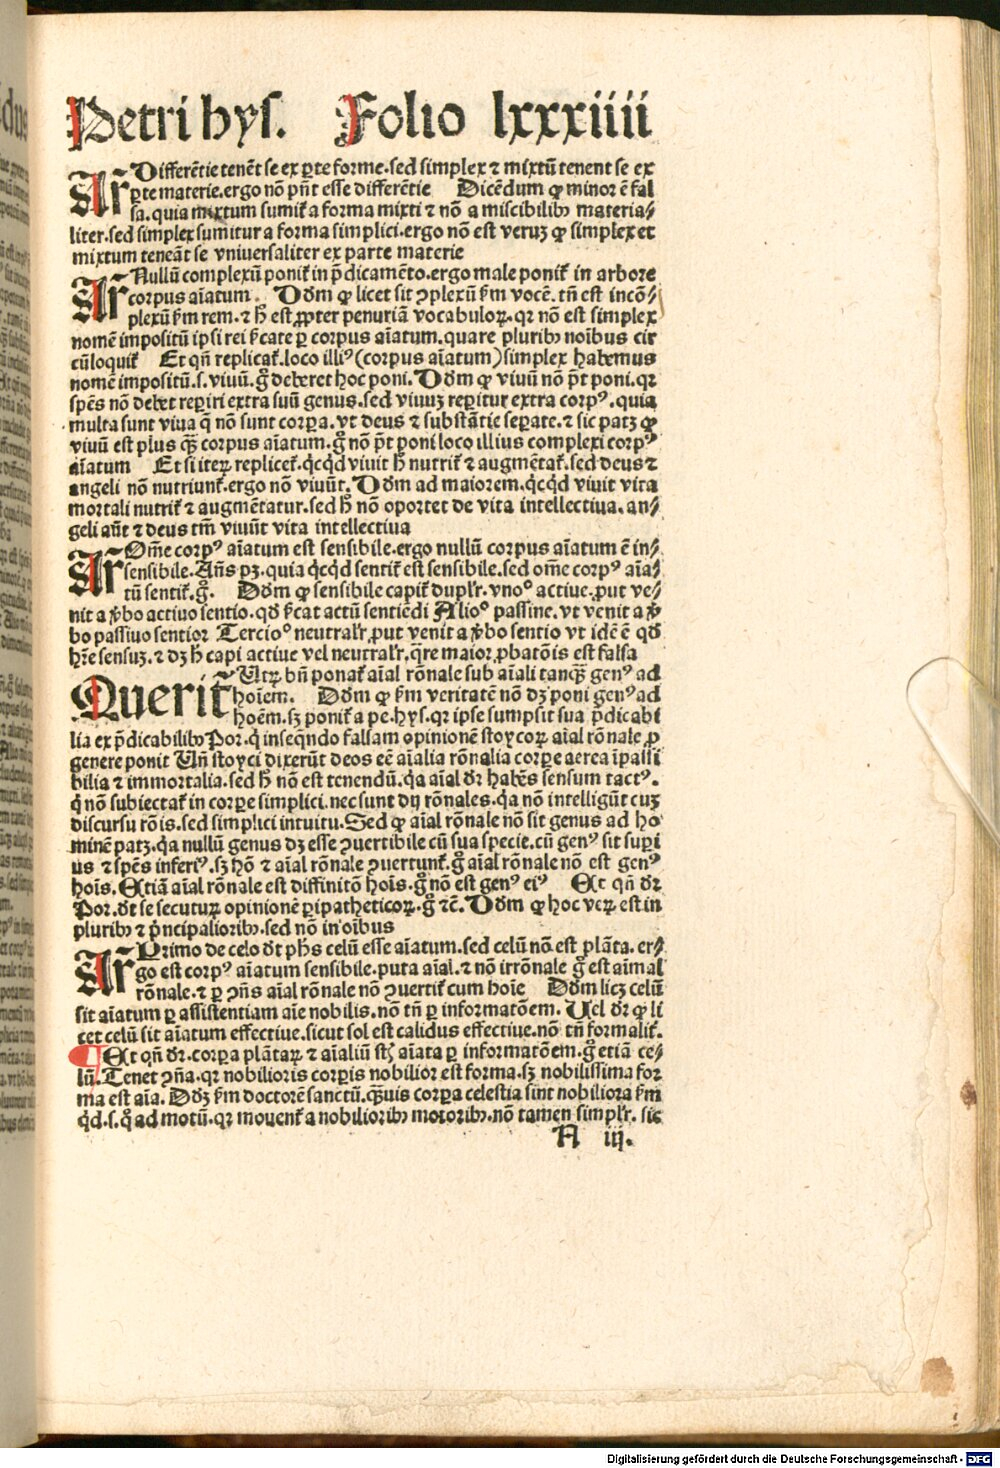 Petri hys. Folio lxxxiiii
Ar̄ Differētie tenēt se ex ꝑte forme. sed simplex ⁊ mixtū tenent se ex
ꝑte materie. ergo nō pn̄t esse differētie Dicēdum ꝙ minor ē fal
sa. quia mixtum sumit̄ a forma mixti ⁊ nō a miscibilibꝫ materia⸗
liter. sed simplex sumitur a forma simplici. ergo nō est veruꝫ ꝙ simplex et
mixtum teneāt se vniuersaliter ex parte materie
Ar̄ Nullū complexū ponit̄ in p̄dicamēto. ergo male ponit̄ in arbore
corpus aīatum. Dd̄m ꝙ licet sit ꝯplexū ẜm vocē. tn̄ est incō⸗
plexū ẜm rem. ⁊ h̄ est ꝓpter penuriā vocabuloꝝ. qꝛ nō est simplex
nomē impositū ipsi rei ẜcate ꝑ corpus aīatum. quare pluribꝫ noībus cir
cūloquit̄ Et qn̄ replicat̄. loco illiꝰ (corpus aīatum) simplex habemus
nomē impositū. s. viuū. g̊ deberet hoc poni. Dd̄m ꝙ viuū nō p̄t poni. qꝛ
spēs nō debet reꝑiri extra suū genus. sed viuuꝫ reꝑitur extra corpꝰ. quia
multa sunt viua q̄ nō sunt corꝑa. vt deus ⁊ substātie seꝑate. ⁊ sic patꝫ ꝙ
viuū est plus qꝫ̄ corpus aīatum. g̊ nō p̄t poni loco illius complexi corpꝰ
aīatum Et si iteꝝ replicet̄. qͥcqͥd viuit h̄ nutrit̄ ⁊ augmētat̄. sed deus ⁊
angeli nō nutriunt̄. ergo nō viuūt. Dd̄m ad maiorem. qͥcqͥd viuit vita
mortali nutrit̄ ⁊ augmētatur. sed h̄ nō oportet de vita intellectiua. an⸗
geli aūt ⁊ deus tm̄ viuūt vita intellectiua
Ar̄ Om̄e corpꝰ aīatum est sensibile. ergo nullū corpus aīatum ē in⸗
sensibile. An̄s pꝫ. quia qͥcqͥd sentit̄ est sensibile. sed om̄e corpꝰ aīa⸗
tū sentit̄. g̊. Dd̄m ꝙ sensibile capit̄ duplr̄. vnoº actiue. ꝓut ve⸗
nit a v̄bo actiuo sentio. qd̄ ẜcat actū sentiēdi Alioº passiue. vt venit a v̄
bo passiuo sentior Tercioº neutralr̄. ꝓut venit a v̄bo sentio vt idē ē qd̄
hr̄e sensuꝫ. ⁊ dꝫ h̄ capi actiue vel neutralr̄. q̄re maior. ꝓbatōis est falsa
Querit̄ Vtꝝ bn̄ ponat̄ aīal rōnale sub aīali tanqꝫ̄ genꝰ ad
hoīem. Dd̄m ꝙ ẜm veritatē nō dꝫ poni genꝰ ad
hoēm. sꝫ ponit̄ a pe. hys. qꝛ ipse sumpsit sua p̄dicabi
lia ex p̄dicabilibꝫ Por. qͥ inseqn̄do falsam opinionē stoycoꝝ aīal rōnale ꝓ
genere ponit Vn̄ stoyci dixerūt deos eē aīalia rōnalia corꝑe aerea īpassi
bilia ⁊ immortalia. sed h̄ nō est tenendū. qͣa aīal dr̄ habēs sensum tactꝰ.
qͥ nō subiectat̄ in corꝑe simplici. nec sunt dij rōnales. qͣa nō intelligūt cuꝫ
discursu rōis. sed simplici intuitu. Sed ꝙ aīal rōnale nō sit genus ad ho
minē patꝫ. qͣa nullū genus dꝫ esse ꝯuertibile cū sua specie. cū genꝰ sit suꝑi
us ⁊ spēs inferiꝰ. sꝫ hō ⁊ aīal rōnale ꝯuertunt̄. g̊ aīal rōnale nō est genꝰ
hoīs. Etiā aīal rōnale est diffinitō hoīs. g̊ nō est genꝰ eiꝰ Et qn̄ dr̄
Por. dt̄ se secuturꝫ opinionē ꝑipatheticoꝝ. g̊ ⁊c̄. Dd̄m ꝙ hoc veꝝ est in
pluribꝫ ⁊ pͥncipalioribꝫ. sed nō in oībus
Ar̄ Primo de celo dt̄ ph̄s celū esse aīatum. sed celū nō est plāta. er⸗
go est corpꝰ aīatum sensibile. puta aīal. ⁊ nō irrōnale g̊ est aīmal
rōnale. ⁊ ꝑ ꝯn̄s aīal rōnale nō ꝯuertit̄ cum hoīe Dd̄m licꝫ celū
sit aīatum ꝑ assistentiam aīe nobilis. nō tn̄ ꝑ informatōem. Vel dr̄ ꝙ li
cet celū sit aīatum effectiue. sicut sol est calidus effectiue. nō tn̄ formalit̄.
¶ Et qn̄ dr̄. corꝑa plātaꝝ ⁊ aīaliū st̄ aīata ꝑ informatōem. g̊ etiā ce⸗
lū. Tenet ꝯn̄a. qꝛ nobilioris corꝑis nobilior est forma. sꝫ nobilissima for
ma est aīa. Dd̄ꝫ ẜm doctorē sanctū. qꝫ̄uis corꝑa celestia sint nobiliora ẜm
qͥd. s. qͦ ad motū. qꝛ mouent̄ a nobilioribꝫ motoribꝫ. nō tamen simplr̄. sic
A iij.
Digitalisierung gefördert durch die Deutsche Forschungsgemeinschaft - DFG